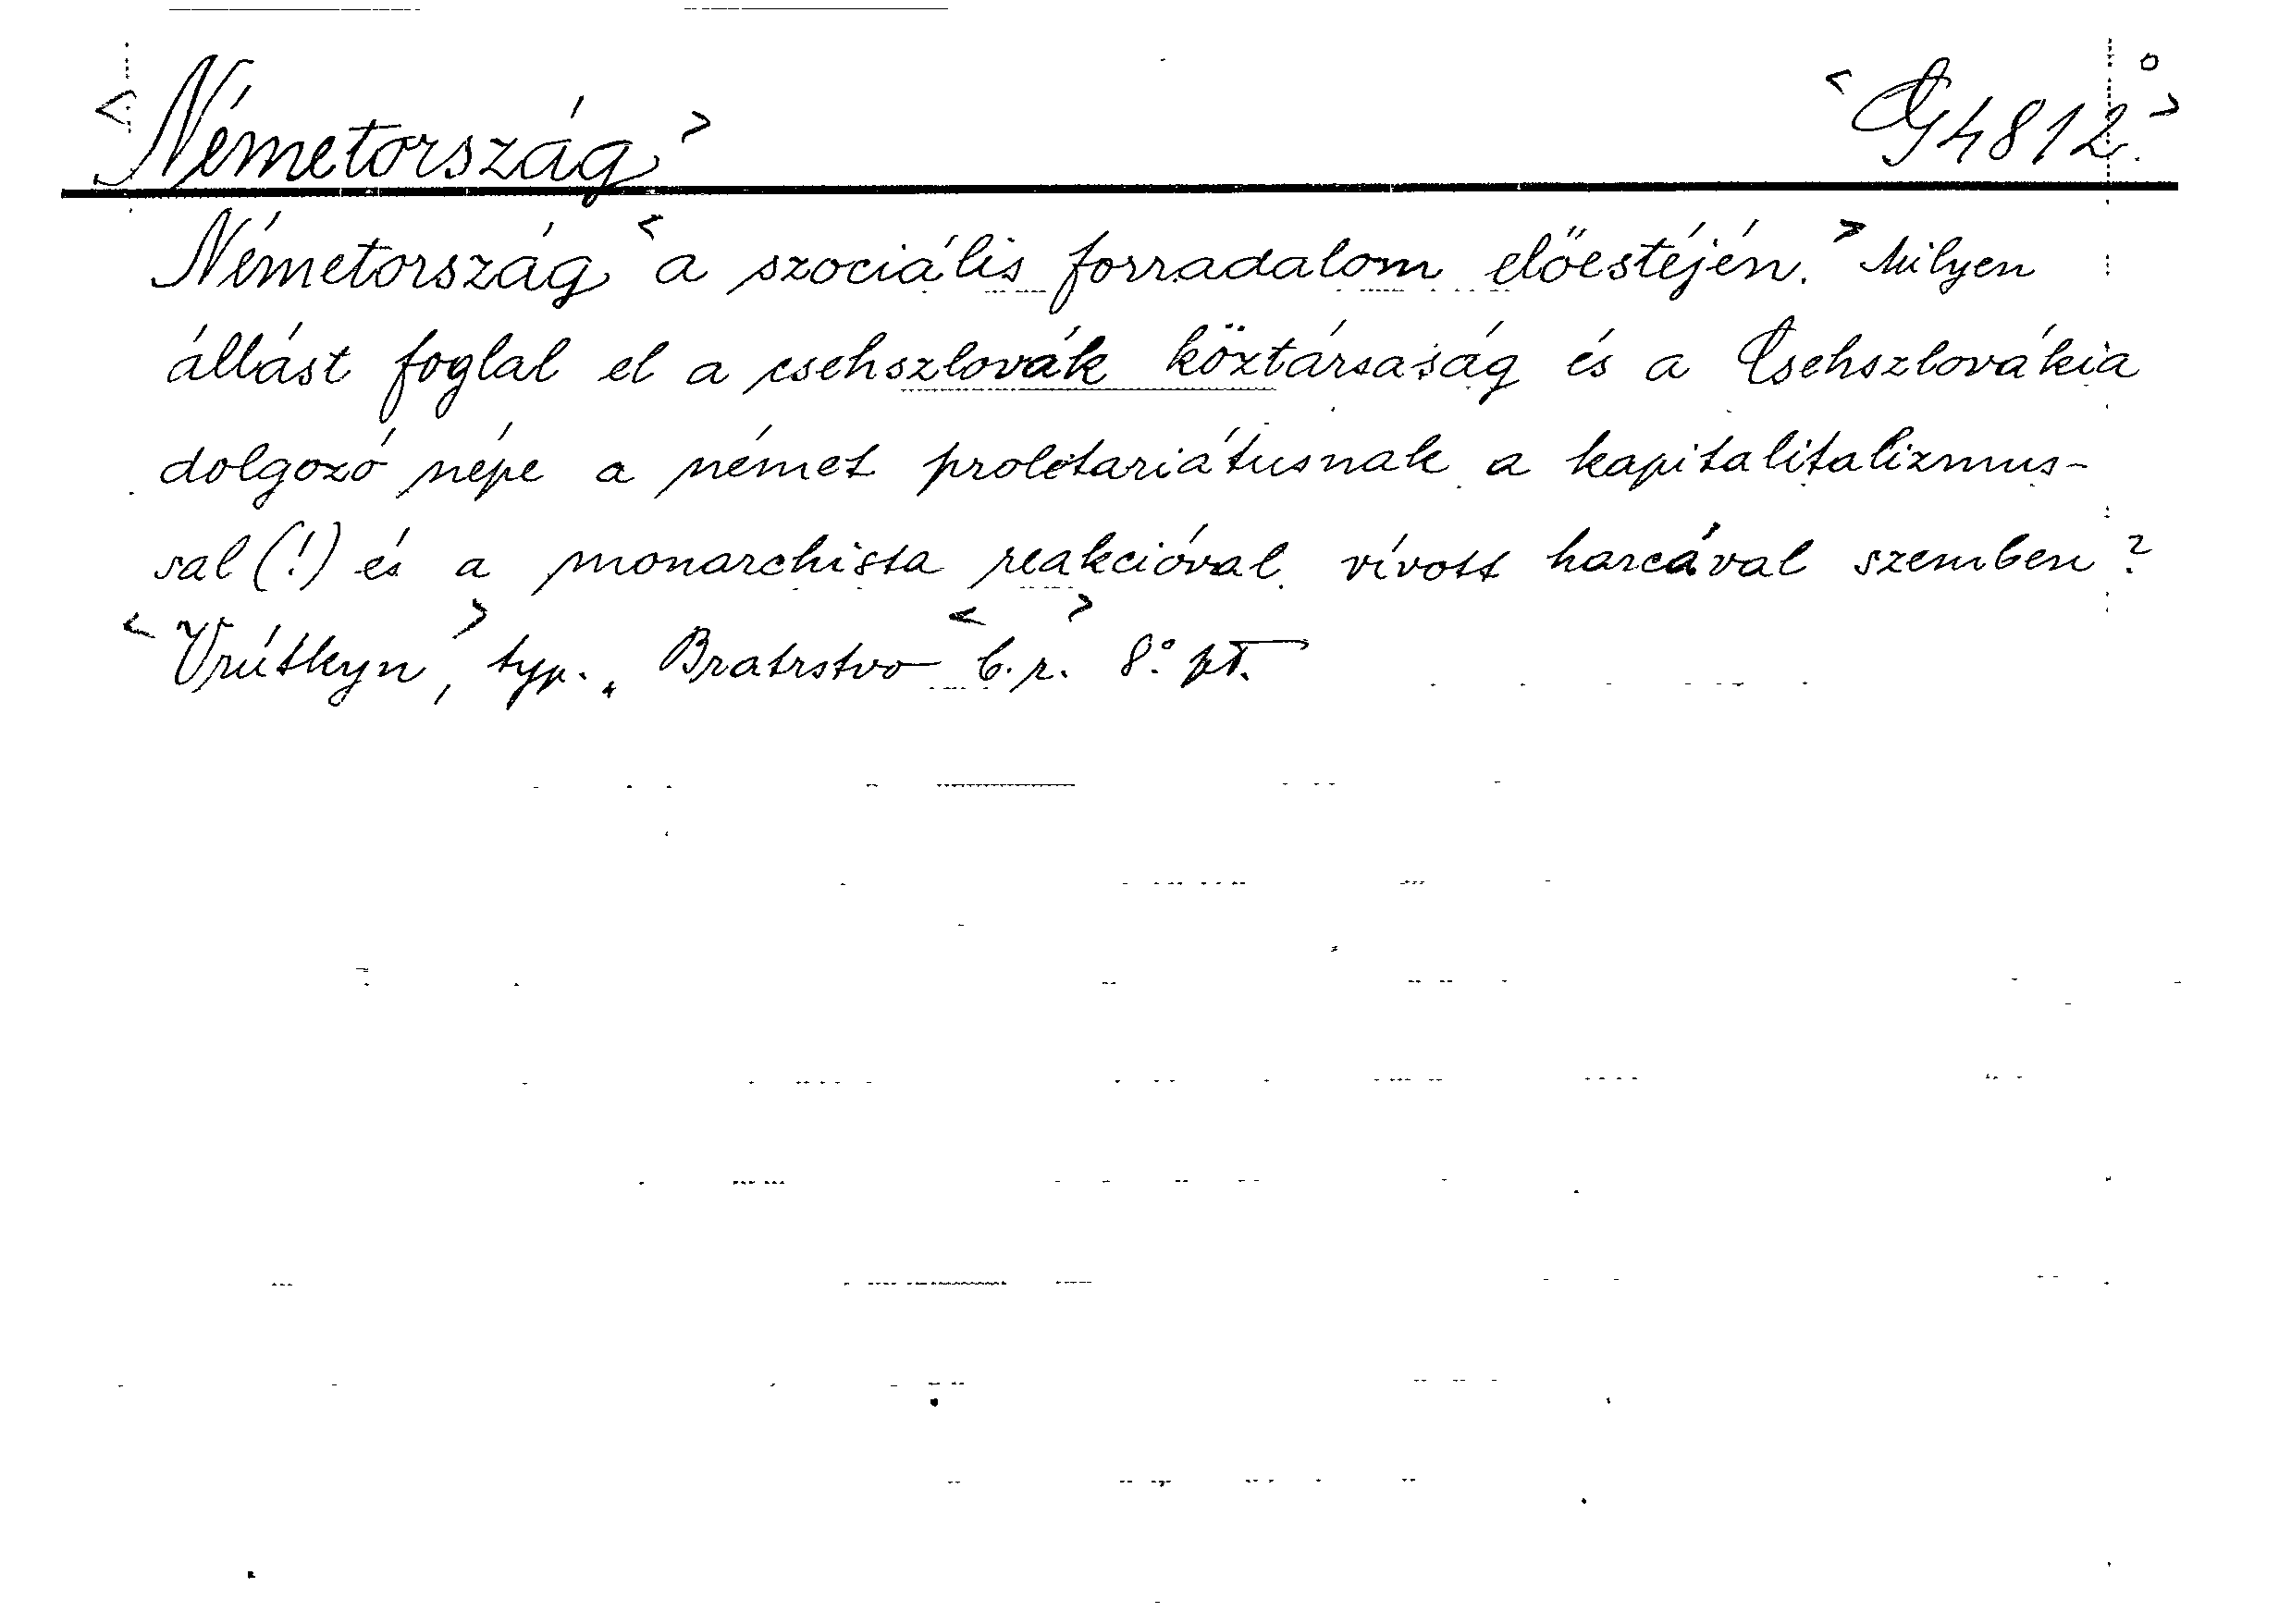 <Németország> <G4812.>
Németország <a szociális forradalom előestéjén.> Milyen
állást foglal el a csehszlovák köztársaság és a Csehszlovákia
dolgozó népe a német proletariátusnak a kapitalitalizmus-
sal (!) és a monarchista reakcióval vívott harcával szemben?
<Vrútkyn>, typ. „Bratrstvo <b.r.> 8° pT.